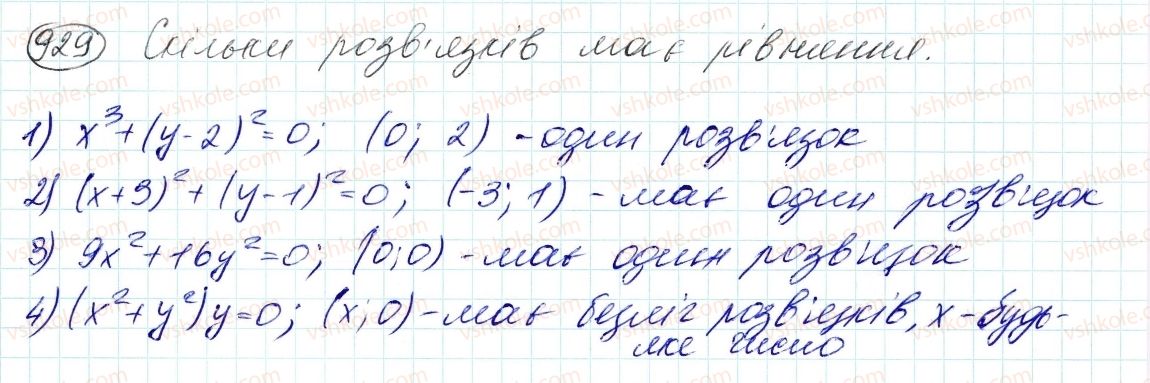 929 Скільки розв'язків має рівняння.
1) x³+(y-2)²=0; (0; 2) - один розв'язок
2) (x+3)²+(y-1)²=0; (-3; 1) - має один розв'язок
3) 9x²+16y²=0; (0;0) - має один розв'язок
4) (x²+y²)y=0; (x; 0) - має безліч розв'язків, x - будь-
яке число